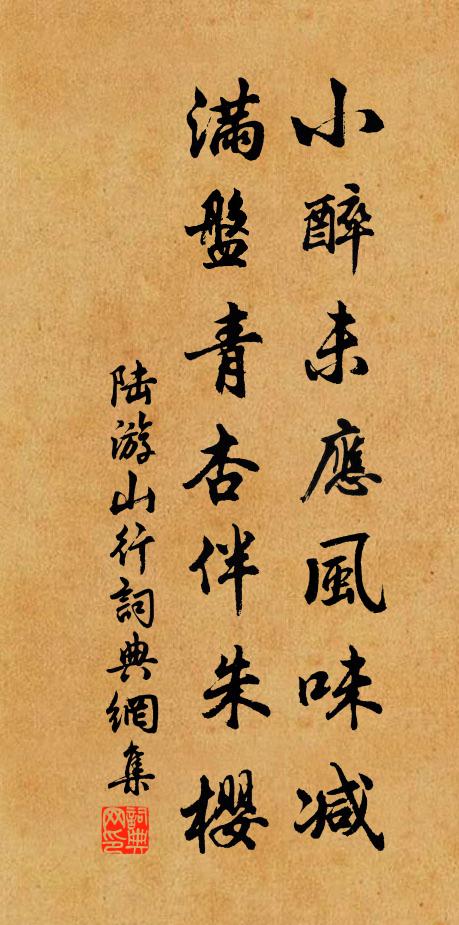 小醉未應風味减
滿盤青杏伴朱櫻
陆游山行詞典網集
詞典网印